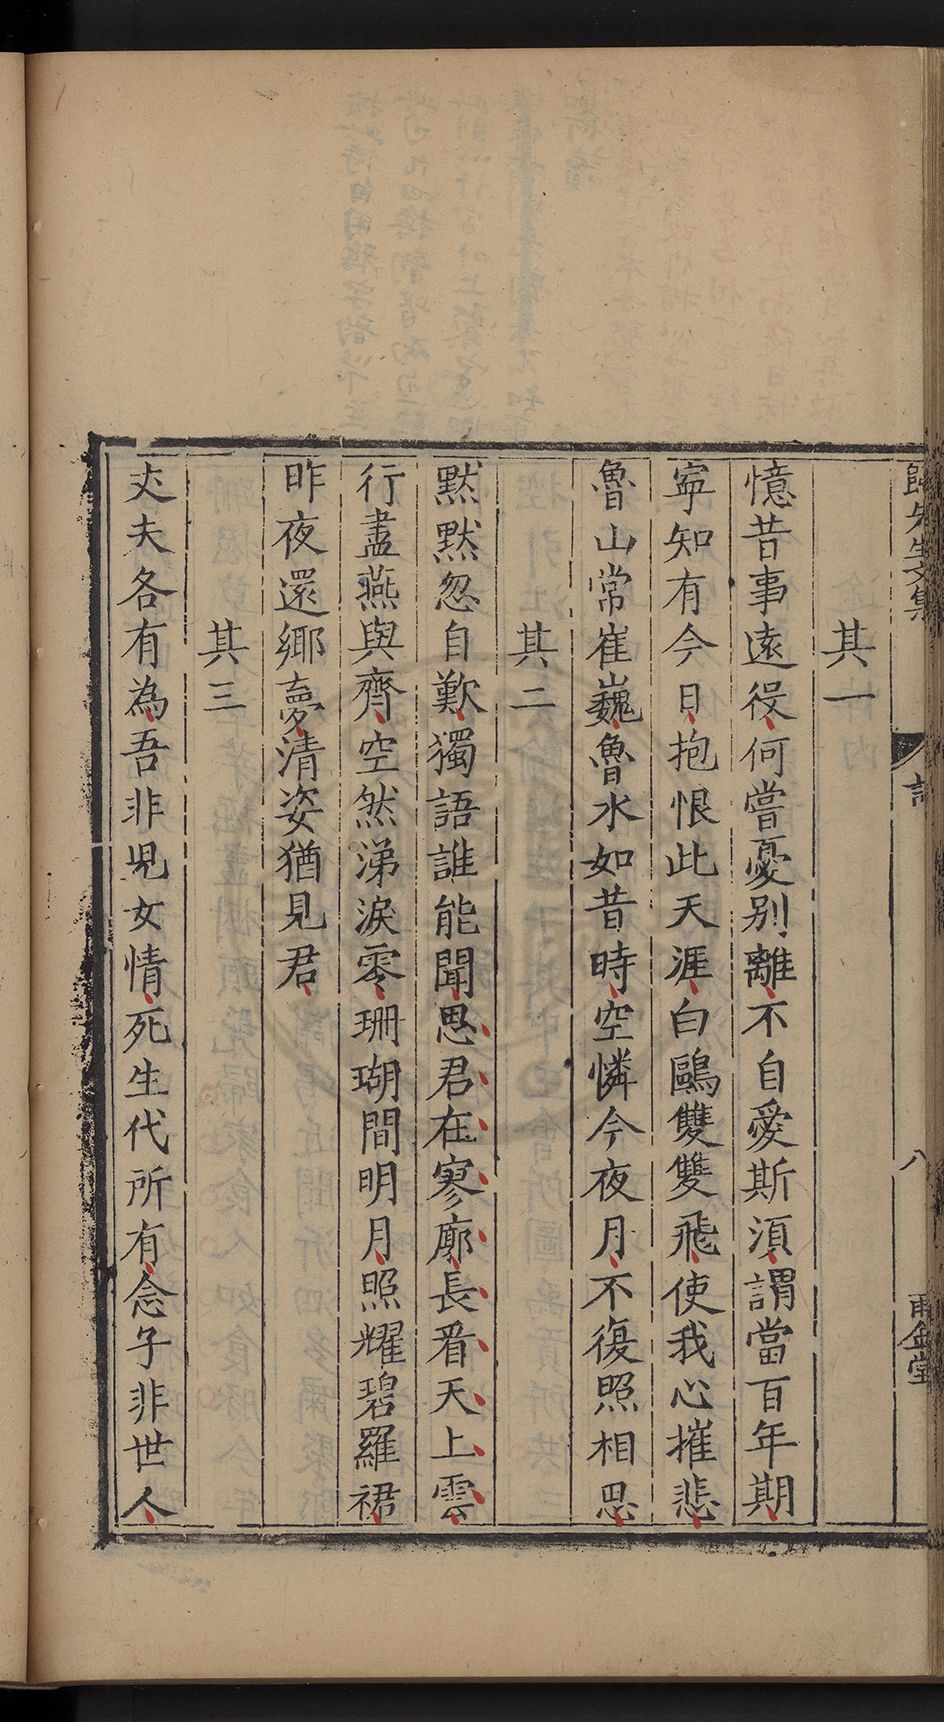 歸先生文集
詩
八
雨金堂
其一
憶昔事遠役何嘗憂别離不自愛斯湏謂當百年期
寧知有今日抱恨此天涯白鷗雙雙飛使我心摧悲
魯山常崔巍魯水如昔時空憐今夜月不復照相思
其二
默默忽自歎獨語誰能聞思君在寥廓長看天上雲
行盡燕與齊空然涕淚零珊瑚間明月照耀碧羅裙
昨夜還鄉夢清姿猶見君
其三
丈夫各有為吾非兒女情死生代所有念子非世人